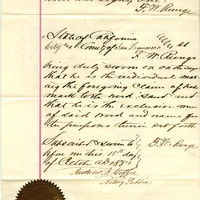 F. W. Runge
State of California
City and County of San Francisco ss
F. W. Runge
being duly sworn on oath says
that he is the individual mak
ing the foregoing Claim of trade
mark
that he is the exclusive owner
of said mark and name for
the purposes therein set forth
Subscribed & sworn to F. W. Runge
before me this 15th day
of Octob 188
Notary Public